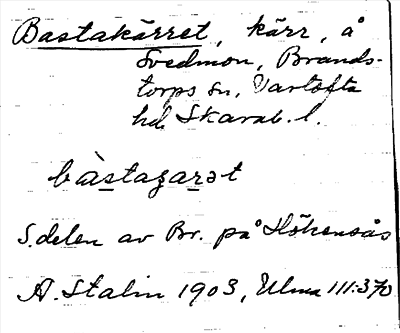 Bastakärret, kärr, å
Svedmon, Brands-
torps sn, Vartofta
hd. Skarab. l.
bàstaʒarət
S.delen av Br. på Hökensås
A. Stalin 1903, Ulma 111:370